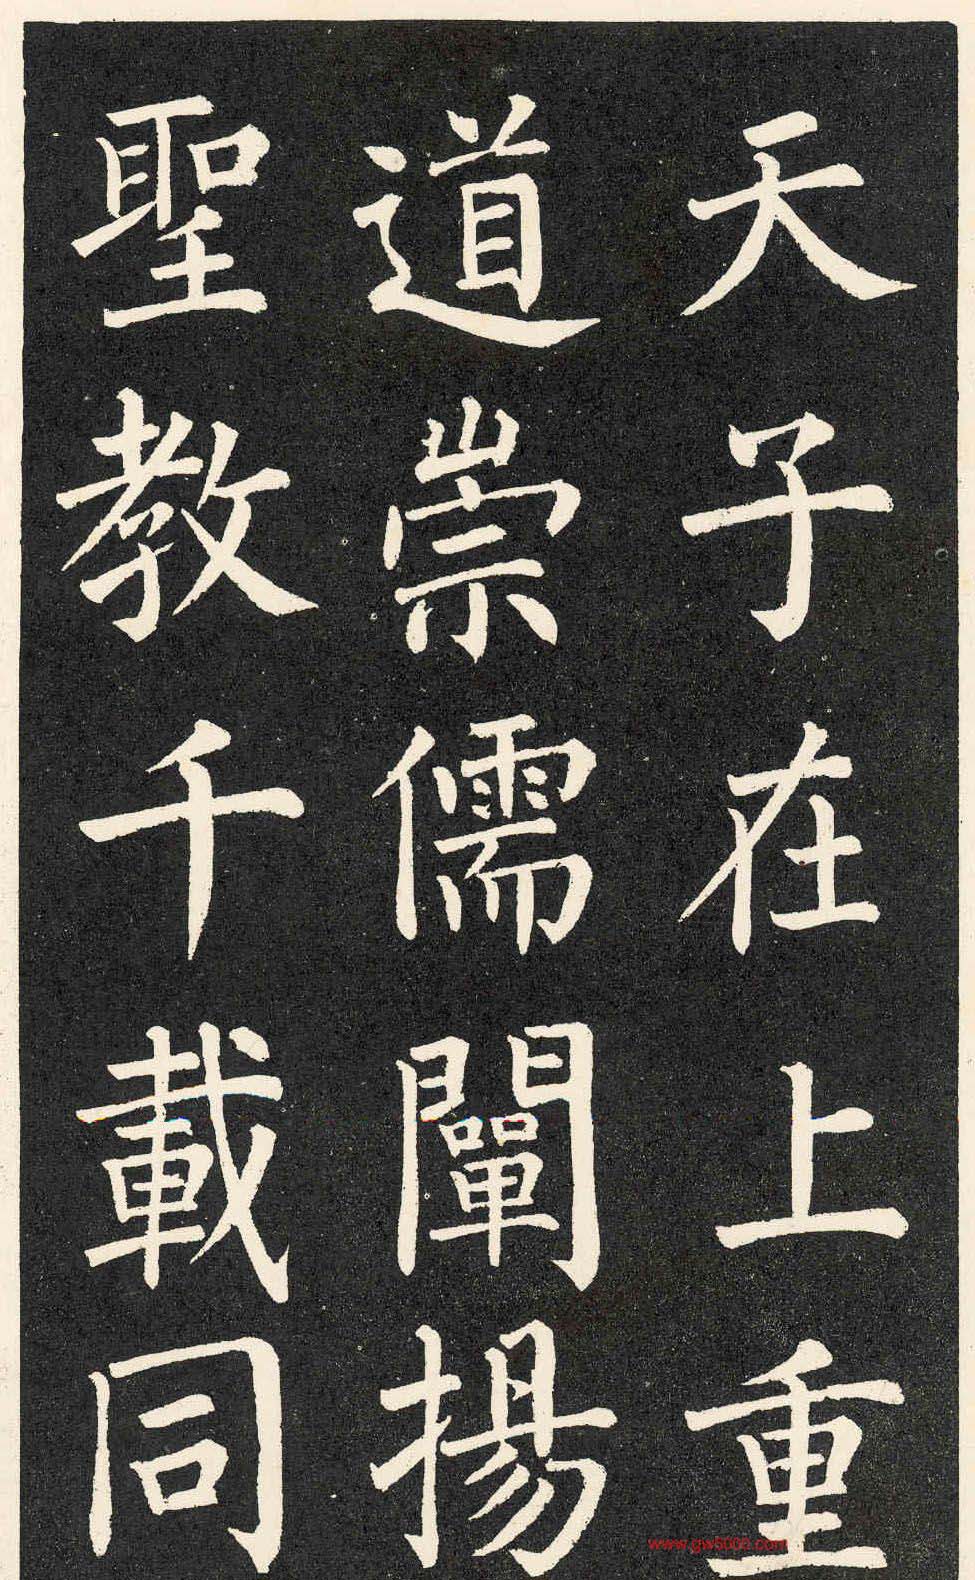 天子在上重
道崇儒闡揚
聖教千載同
www.gw5000.com